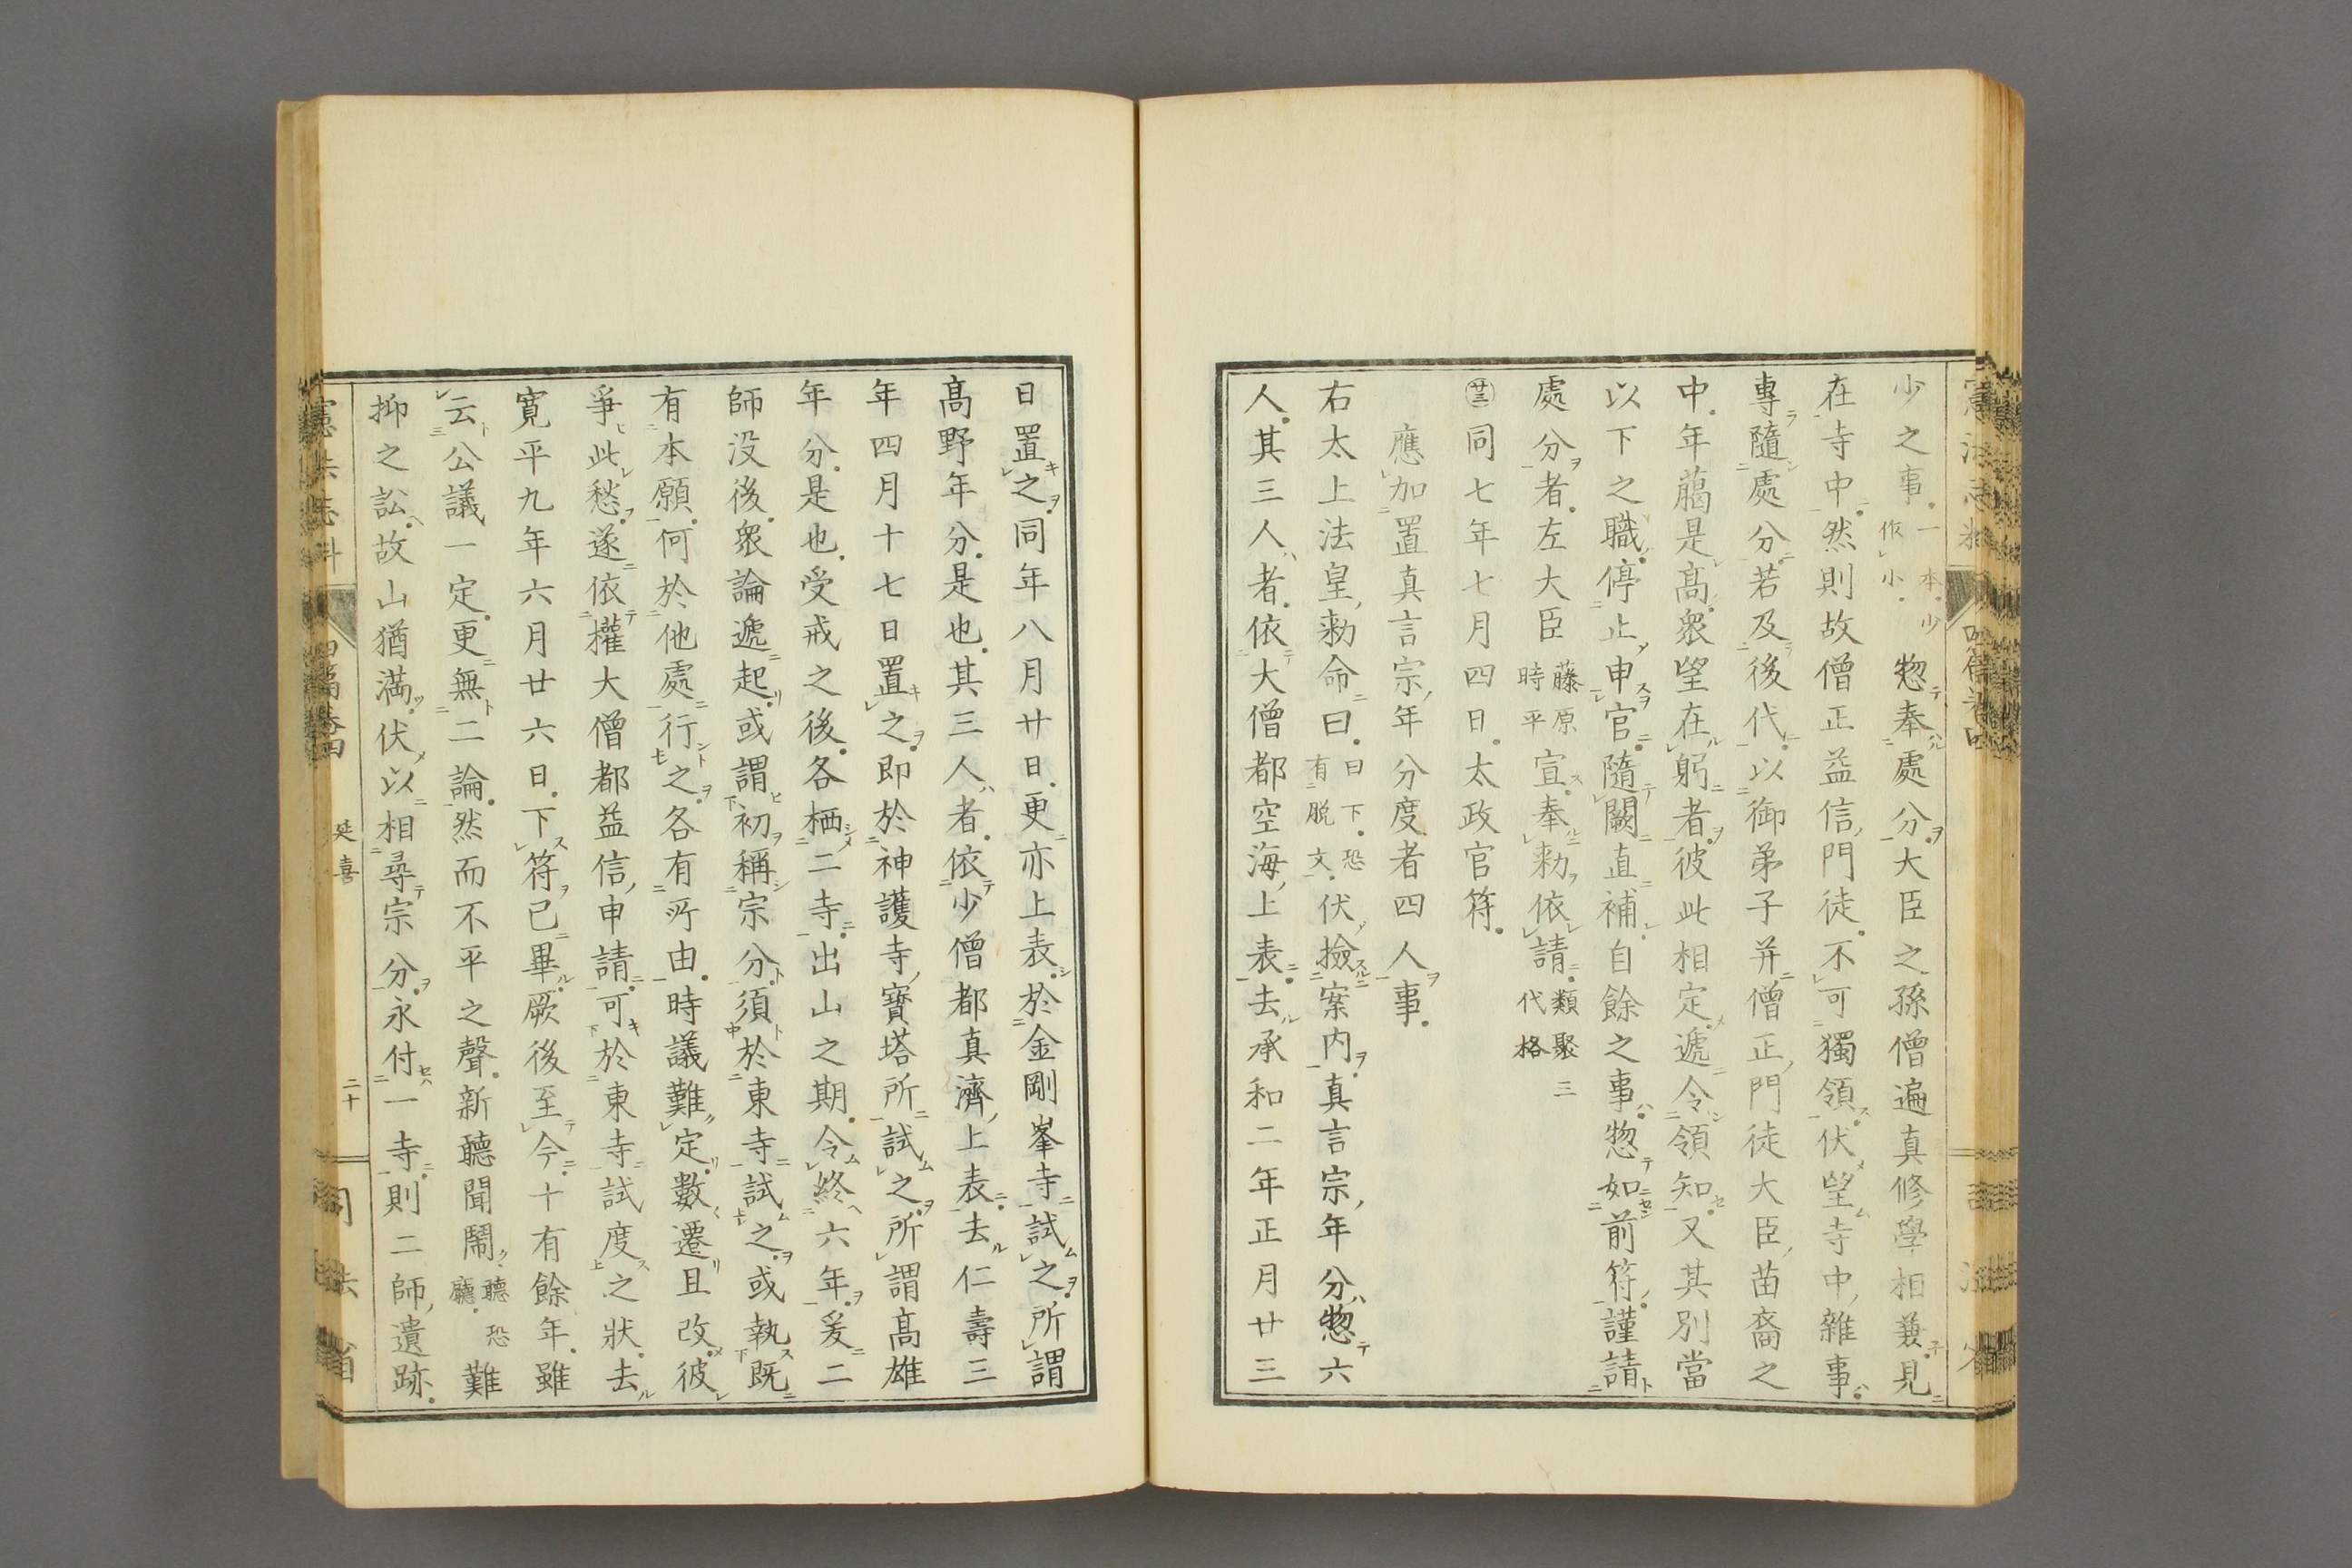 少之事。一本。少作レ小。惣奉處分。大臣之孫僧遍真修學相兼。見
在寺中。然則故僧正益信門徒。不可獨領。伏望寺中雜事。
專隨處分。若及後代。以御弟子并僧正門徒大臣苗裔之
中。年﨟是高。衆望在躬者。彼此相定。遞令領知。又其別當
以下之職。停止申官。隨闕直補。自餘之事。惣如前符。謹請
處分者。左大臣藤原時平宣。奉勅。依請。類聚三代格
㊳同七年七月四日。太政官符。
應加置真言宗年分度者四人事。
右太上法皇勅命曰。曰下。恐有脱文。伏撿案内。真言宗年分。惣六
人。其三人者。依大僧都空海上表。去承和二年正月廿三
日置之。同年八月廿日。更亦上表。於金剛峯寺試之。所謂
髙野年分。是也。其三人者。依少僧都真濟上表。去仁壽三
年四月十七日置之。即於神護寺寶塔所試之。所謂髙雄
年分。是也。受戒之後。各栖二寺。出山之期。令終六年。爰二
師没後。衆論遞起。或謂初稱宗分。須於東寺試之。或執既
有本願。何於他處行之。各有所由。時議難定。數遷且改。彼
爭此愁。遂依權大僧都益信申請。可於東寺試度之狀。去
寛平九年六月廿六日。下符已畢。厥後至今。十有餘年。雖
云公議一定。更無二論。然而不平之聲。新聽聞鬧。聽恐廳。難
抑之訟。故山猶満。伏以相尋宗分。永付一寺。則二師遺跡。
憲法志料 四篇卷四 延喜 二十 司法省